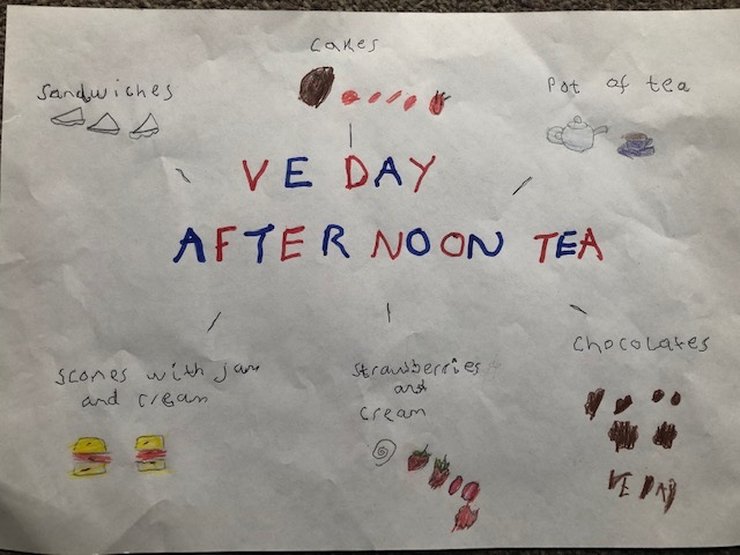 Cakes
Sandwiches
Pot of tea
VE DAY
AFTERNOON TEA
Chocolates
Scones with jam
and cream
Strawberries
and
cream
VE DAY